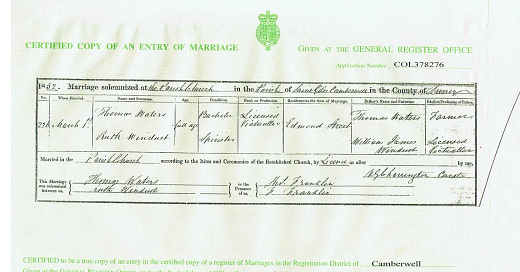 CERTIFIED COPY OF AN ENTRY OF MARRIAGE
GIVEN AT THE GENERAL REGISTER OFFICE
Application Number COL378276
1852. Marriage solemnized at the Parish Church in the Parish of in the County of Surrey
No. When Married. Name and Surname. Age. Condition. Rank or Profession. Residence at the time of Marriage. Father's Name and Surname. Rank or Profession of Father.
March 1st Thomas Waters full age Bachelor Licensed Victualler Edmund Street Thomas Waters Farmer
Ruth Windust Spinster William James Windust Licensed Victualler
Married in the Parish Church according to the Rites and Ceremonies of the Established Church, by Licence or after by me,
Curate
This Marriage was solemnized between us, Thomas Waters
Ruth Windust
in the Presence of us, Franklin
Franklin
CERTIFIED to be a true copy of an entry in the certified copy of a register of Marriages in the Registration District of Camberwell